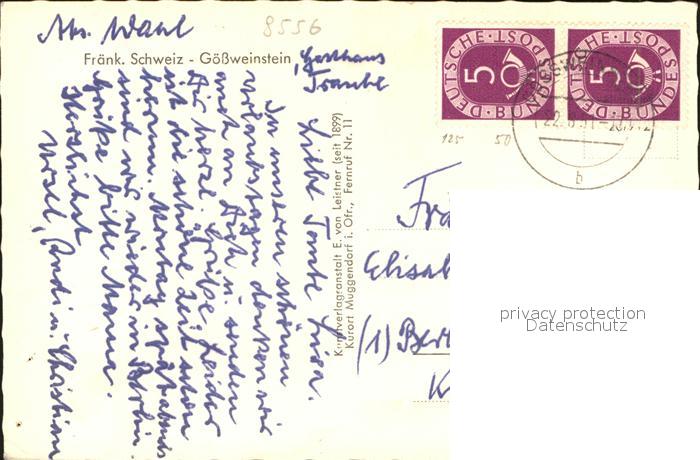 Abs. Wahl
8556
Fränk. Schweiz - Gößweinstein
Gasthaus
Traube
DEUTSCHE·POST
5
BUNDES
DEUTSCHE·POST
5
BUNDESP
22.8.51
b
125 50
Liebe Tante
In unseren schönen
Urlaubstagen denken wir
auch an Dich u. senden
Dir herzl. Grüße. Leider
ist die schöne Zeit schon
herum. Montag spätabends
sind wir wieder in Berlin.
Grüße bitte Mama.
Herzlichst
Ursel, Rudi u. Christian
Kunstverlagranstalt E. von Leistner (seit 1899)
Kurort Muggendorf i. Ofr., Fernruf Nr. 11
Fra
Elisab
(1) Berl
K
privacy protection
Datenschutz